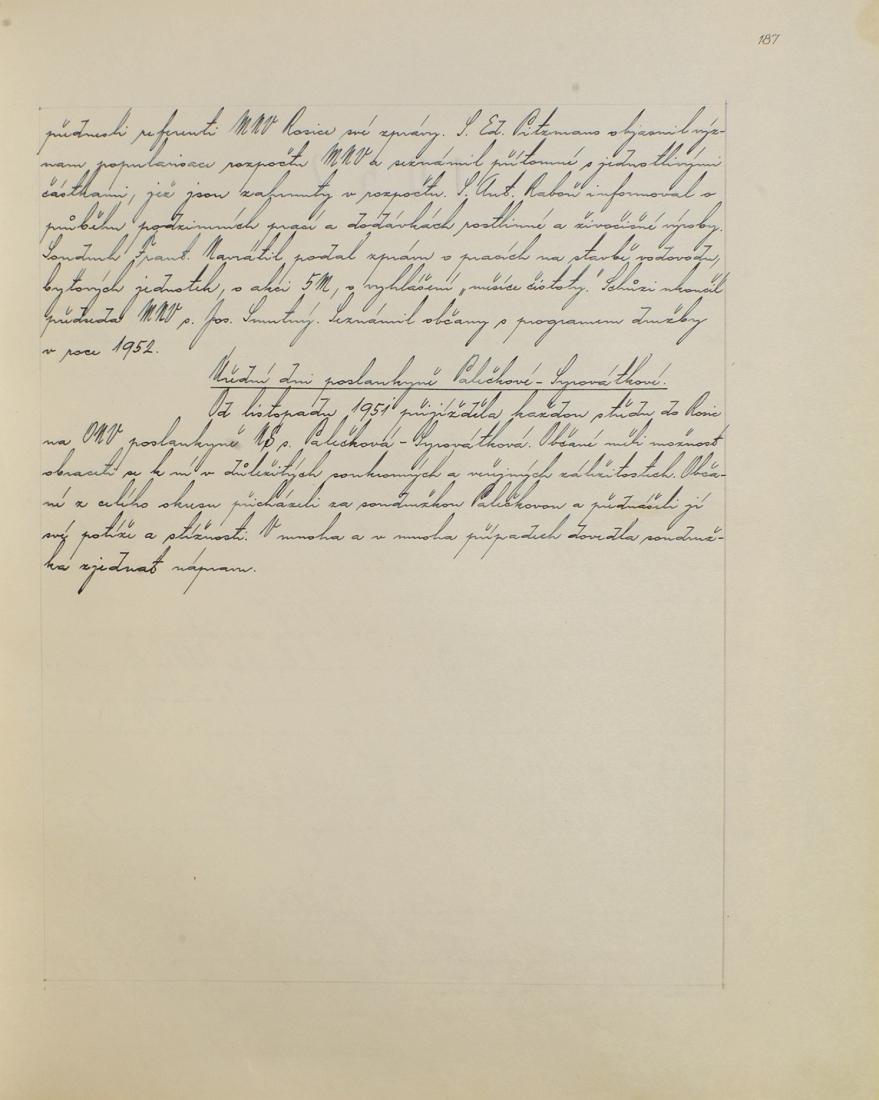 187
přednesli referenti MNV Rosice své zprávy. S. Ed. Pitzmans objasnil výz-
nam popularisace rozpočtu MNV a seznámil přítomné s jednotlivými
částkami, jež jsou zahrnuty v rozpočtu. S. Ant. Raboň informoval o
průběhu podzimních prací a dodávkách rostlinné a živočišné výroby.
Soudruh Frant. Navrátil podal zprávu o pracích na stavbě vodovodu,
bytových jednotek, o akci 5M, o vyhlášení „měsíce čistoty." Schůzi ukončil
předseda MNV s. Jos. Smutný. Seznámil občany s programem družby
v roce 1952.
Úřední dni poslankyně Palečkové - Syrovátkové.
Od listopadu 1951 přijížděla každou středu do Rosic
na ONV poslankyně NS s. Palečková - Syrovátková. Občané měli možnost
obraceti se k ní v důležitých soukromých a veřejných záležitostech. Obča-
né z celého okresu přicházeli za soudružkou Palečkovou a přednášeli jí
své potíže a stížnosti. V mnoha a v mnoha případech dovedla soudruž-
ka zjednat nápravu.